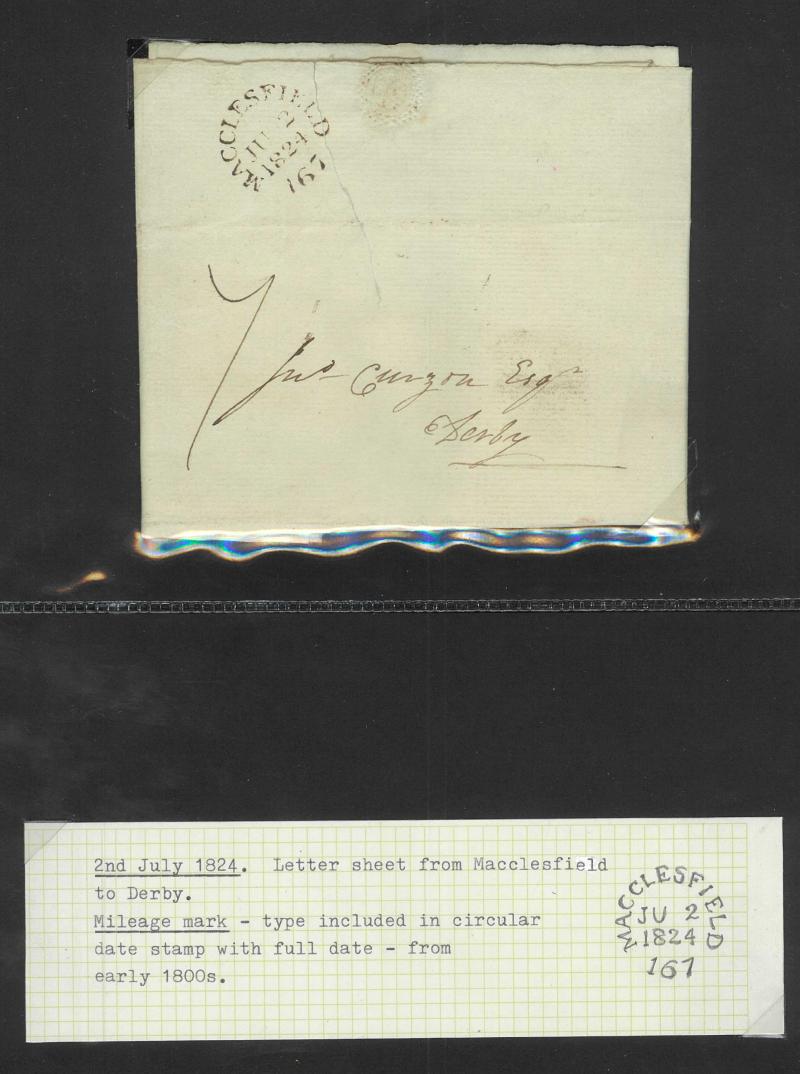 MACCLESFIELD
JU 2
1824
167
7
Jno Curzon Esqr
Derby
2nd July 1824. Letter sheet from Macclesfield
to Derby.
Mileage mark - type included in circular
date stamp with full date - from
early 1800s.
MACCLESFIELD
JU 2
1824
167